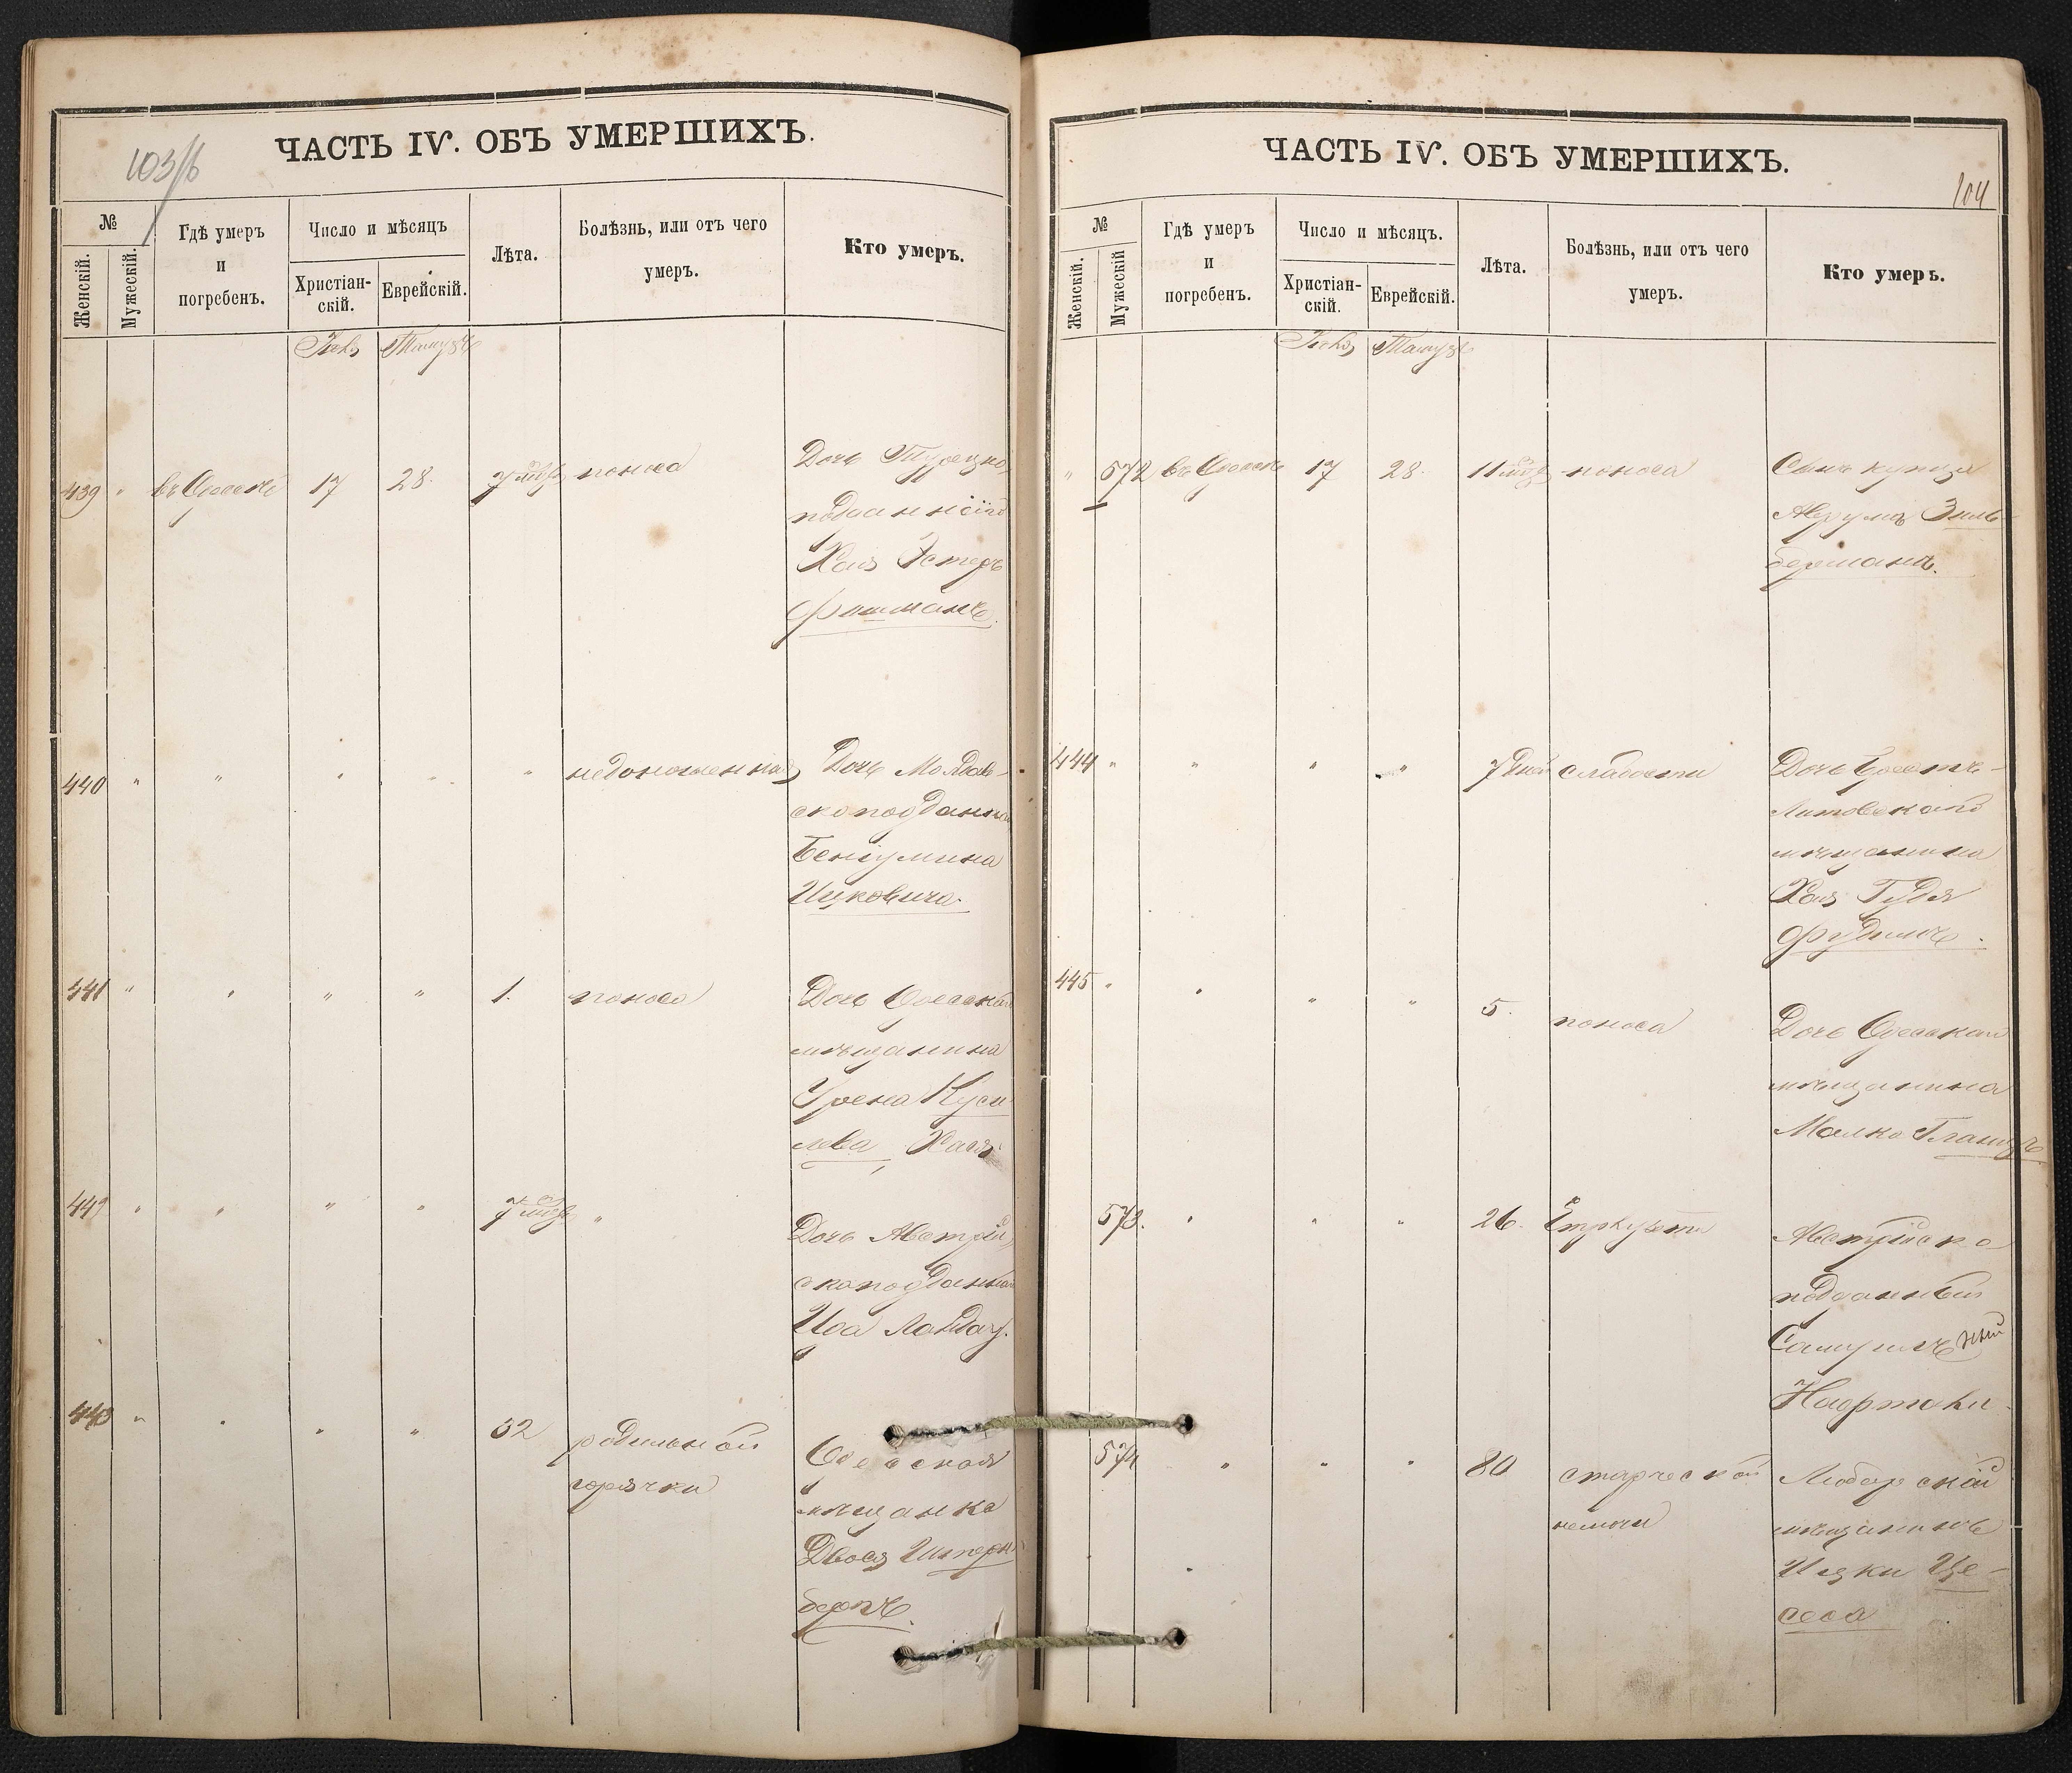 103/б
ЧАСТЬ IV. ОБЪ УМЕРШИХЪ.
№
Женскій.
Мужескій.
Гдѣ умеръ
и
погребенъ.
Число и мѣсяцъ
Христіан-
скій.
Еврейскій.
Лѣта.
Болѣзнь, или отъ чего
умеръ.
Кто умеръ.
Тамузъ
439 " въ Одессѣ 17 28. 7 поноса Дочь Турецко
подданнаго
Хая Эстеръ
Фишманъ.
440 " " " " " недоношенная Дочь Молдав-
скоподданна
Беніумина
Ицковича.
441 " " " " 1. поноса Дочь Одесскаго
мѣщанина
Хая
" " " " 7 " Дочь Австрій
скоподданнаго
Ида Ландау.
443 " " " " родильной
горячки
Одесская
мѣщанка
Двося Штерн
бергъ.
ЧАСТЬ IV. ОБЪ УМЕРШИХЪ.
104
№
Женскій.
Мужескій
Гдѣ умеръ
и
погребенъ.
Число и мѣсяцъ.
Христіан-
скій.
Еврейскій.
Лѣта.
Болѣзнь, или отъ чего
умеръ.
Кто умеръ.
Тамузъ
" 572 въ Одессѣ 17 28. 11 поноса Сынъ купца
Аврумъ Зиль
берманъ.
444 " " " " 7 дней слабости Дочь Брестъ-
Литовскаго
мѣщанина
Хая
445 " " " " 5. поноса Дочь Одесскаго
мѣщанина
Малка Гланцъ
573. " " " 26. Австрійско
подданный
Самуилъ
574 " " " 80 старческой
немочи
Любарскій
мѣщанинъ
Ицки Це-